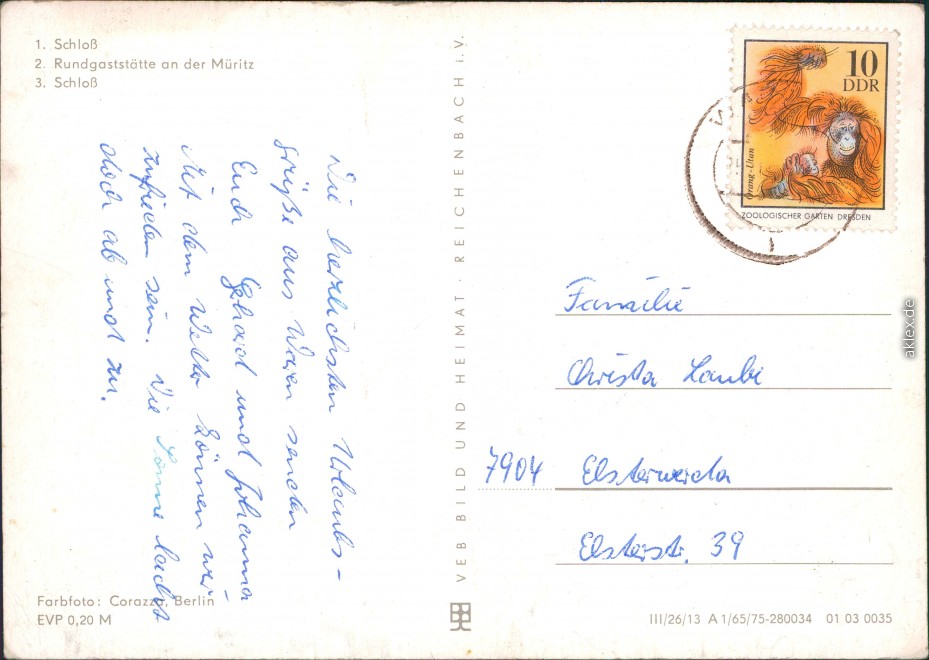 1. Schloß
2. Rundgaststätte an der Müritz
3. Schloß
Die herzlichsten Urlaubs-
grüße aus Waren senden
Euch Gerhard und Johanna
Mit dem Wetter können wir
zufrieden sein. Die Sonne lacht
doch ab und zu.
Farbfoto: Corazza, Berlin
EVP 0,20 M
VEB BILD UND HEIMAT · REICHENBACH i.V.
10
DDR
Orang-Utan
ZOOLOGISCHER GARTEN DRESDEN
Familie
Christa Laube
7904 Elsterwerda
Elsterstr. 39
III/26/13 A 1/65/75-280034 01 03 0035
aklex.de